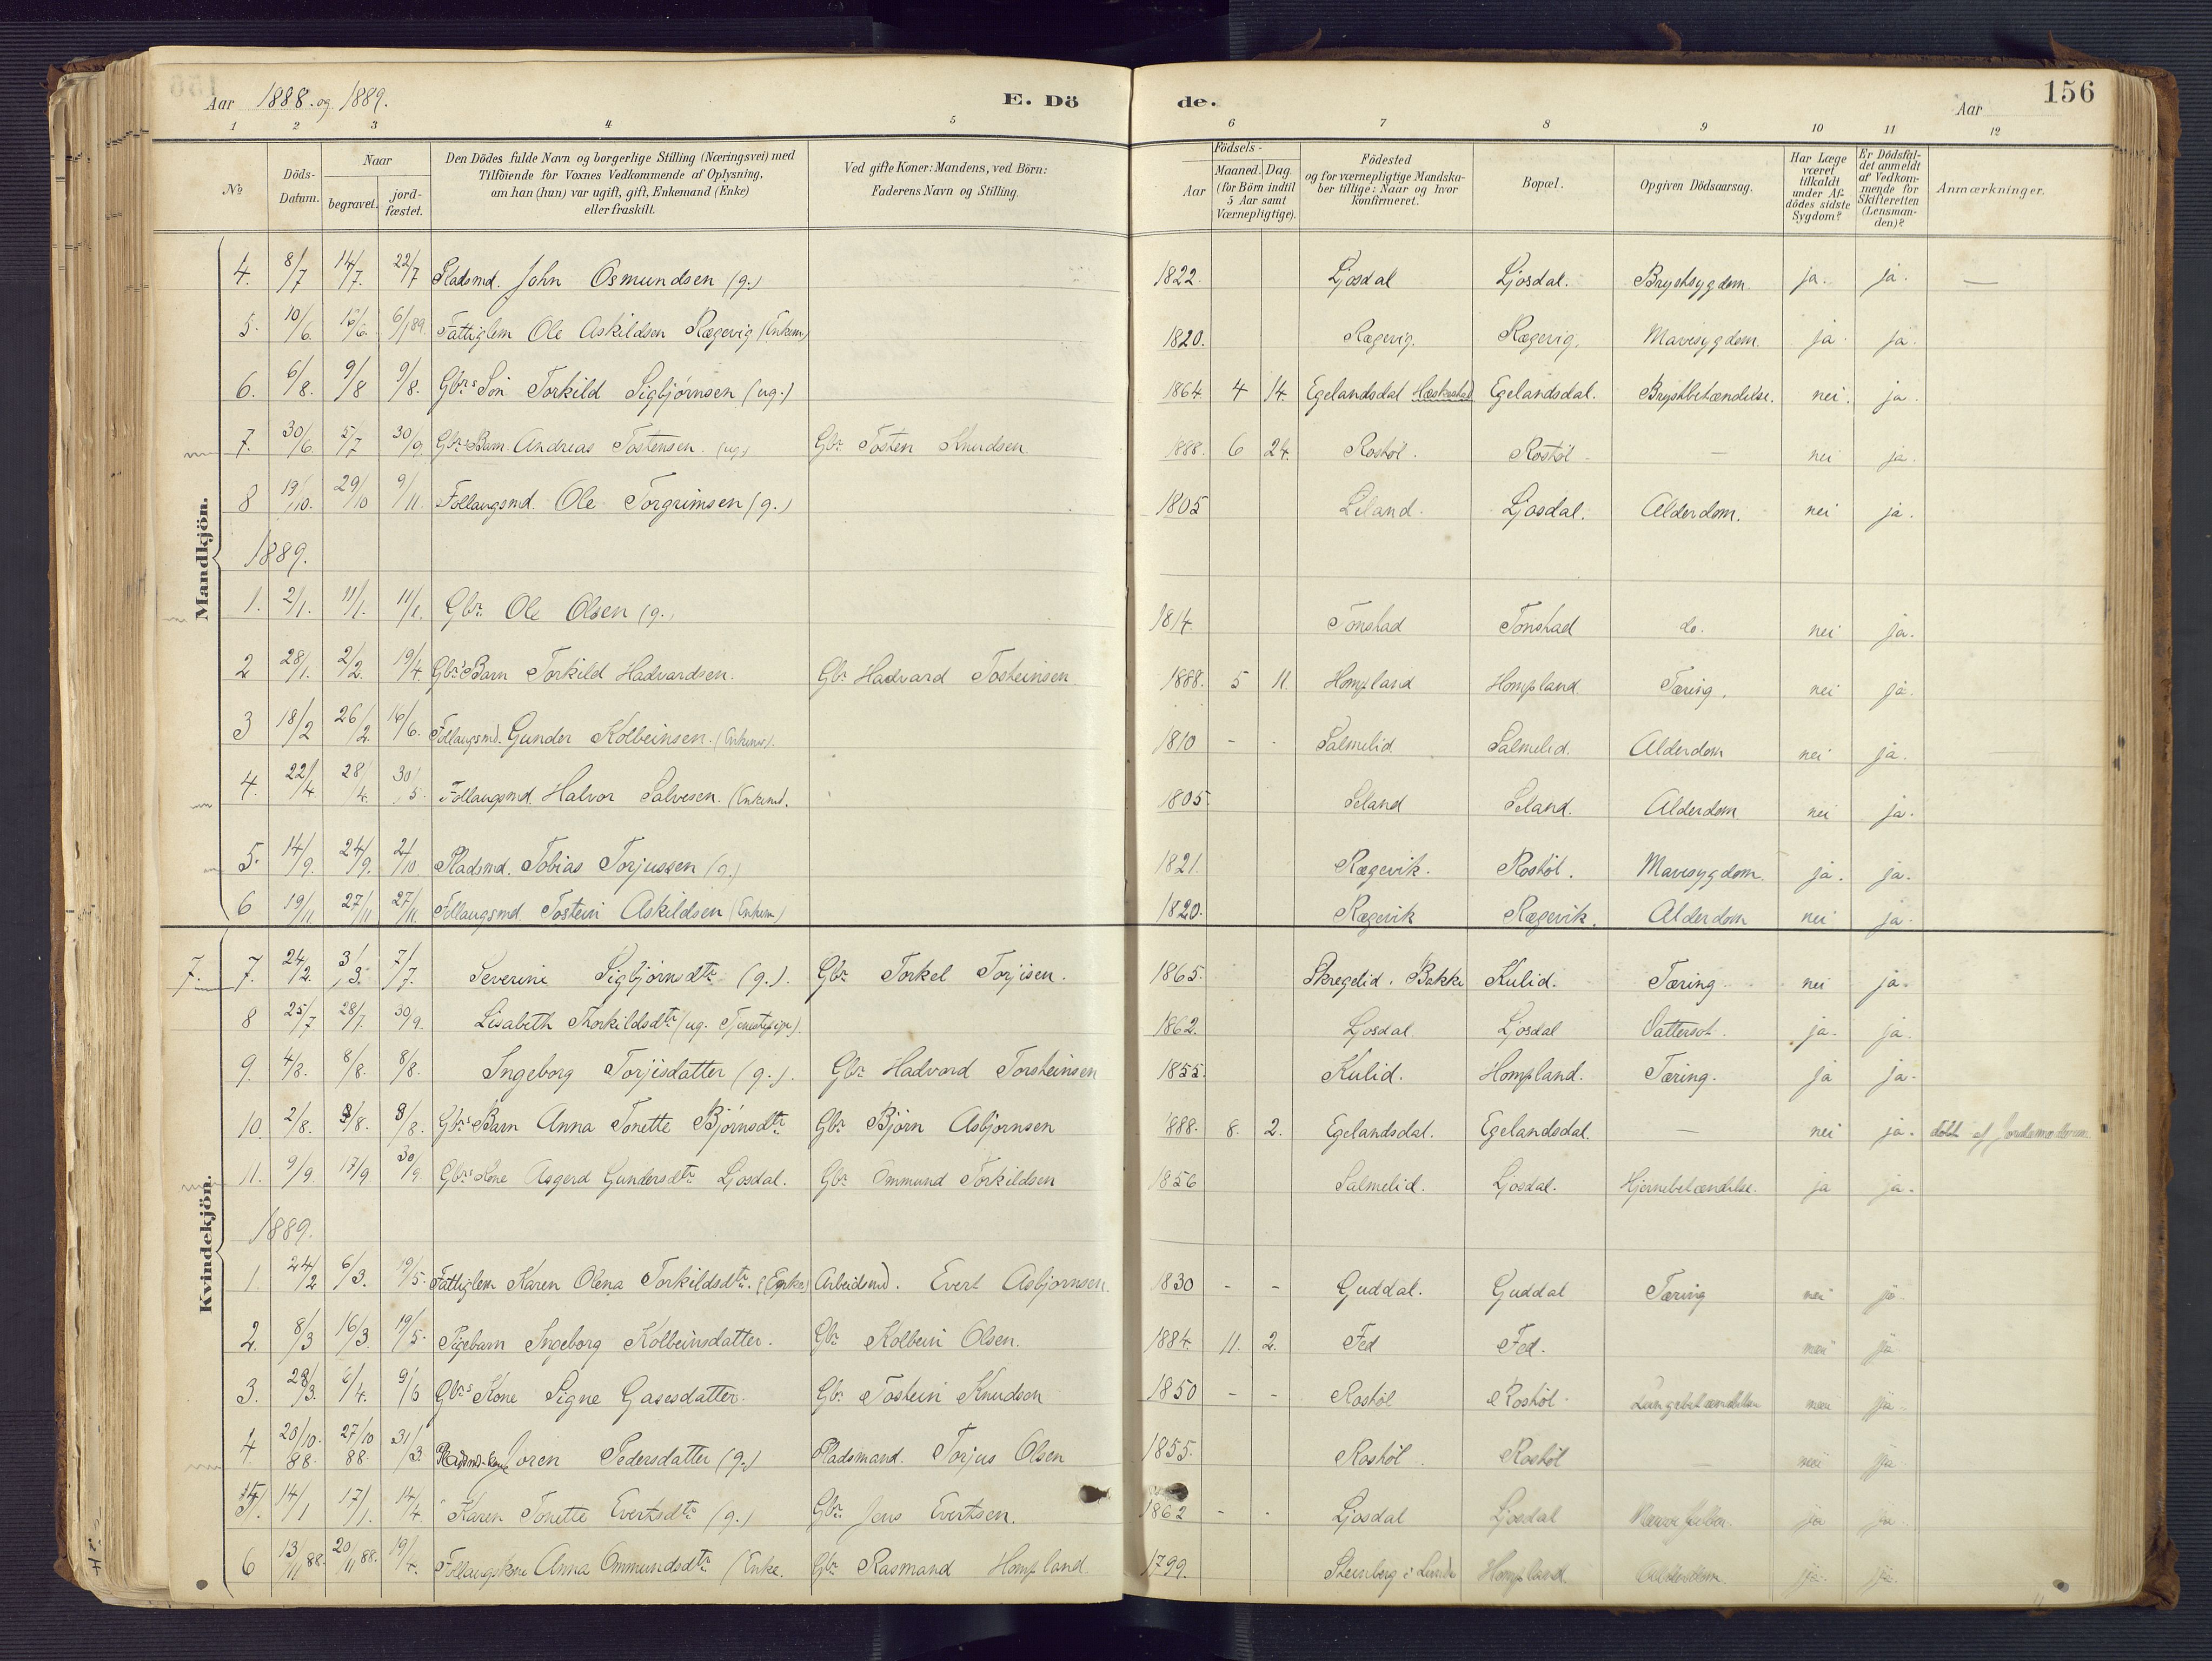 Aar 1888. og 1889.
E. Dö
de.
Aar
156
1 2 3 4 5 6 7 8 9 10 11 12
No Döds-Datum. Naar begravet. jordfæstet. Den Dödes fulde Navn og borgerlige Stilling (Næringsvei) med Tilföiende for Voxnes Vedkommende af Oplysning, om han (hun) var ugift, gift, Enkemand (Enke) eller fraskilt. Ved gifte Koner: Mandens, ved Börn: Faderens Navn og Stilling. Födsels- Aar Maaned. Dag. (for Börn indtil 5 Aar samt Værnepligtige). Födested og for værnepligtige Mandskaber tillige: Naar og hvor konfirmeret. Bopæl. Opgiven Dödsaarsag. Har Læge været tilkaldt under Afdödes sidste Sygdom? Er Dödsfaldet anmeldt af Vedkommende for Skifteretten (Lensmanden)? Anmærkninger.
Mandkjön.
4. 8/7 14/7. 22/7 Pladsmd. John Osmundsen (g.) 1822. Ljosdal Ljosdal. Brystsygdom ja. ja. —
5. 10/6. 16/6. 6/1 89. Fattiglem Ole Askildsen Rægevig (Enkem) 1820. Rægevig. Rægevig. Mavesygdom. ja. ja.
6. 6/8. 9/8 9/8. Gbrs Søn Torkild Sigbjörnsen (ug.) 1864. 4 14. Egelandsdal Egelandsdal. Brystbetændelse. nei. ja.
7. 30/6. 5/7 30/9. Gbrs Barn. Andreas Tostensen. (ug) Gbr. Tosten Knudsen. 1888. 6 24. Rostöl. Rostöl — nei ja.
8 19/10. 29/10 9/11. Follaugsmd. Ole Torgrimsen (g.) 1805 Liland. Ljosdal. Alderdom. nei ja.
1889.
1. 2/1. 11/1. 11/1. Gbr. Ole Olsen (g.) 1814. Tonstad Tonstad do. nei ja.
2 28/1. 2/2. 19/4. Gbrs Barn Torkild Hadvardsen. Gbr Hadvard Tosteinsen 1888. 5 11. Hompland Hompland. Tæring. nei ja.
3 18/2 26/2. 16/6. Follaugsmd. Gunder Kolbeinsen. (Enkem). 1810 - - Salmelid. Salmelid. Alderdom nei ja.
4. 22/4. 28/4. 30/5. Follaugsmd. Halvor Salvesen. (Enkemd. 1805 Seland Seland. Alderdom nei ja.
5. 14/9. 24/9. 2/10. Pladsmd. Tobias Torjussen (g.) 1821. Rægevik. Rostöl. Mavesygdom. ja. ja.
6 19/11 27/11 27/11. Follaugsmd. Tostein Askildsen (Enkem) 1820. Rægevik Rægevik. Alderdom nei ja.
Kvindekjön.
7. 7. 24/2. 3/3. 7/7. Severine Sigbjörnsdtr (g.). Gbr Torkel Torjisen. 1865. Skregelid. Bakke Kulid. Tæring. nei ja.
8 25/7 28/7. 30/9. Lisabeth Thorkildsdtr (ug. Tjenestepige). 1862. Ljosdal. Ljosdal Vattersot. ja. ja.
9. 4/8. 8/8. 8/8. Ingeborg Torjisdatter (g.). Gbr Hadvard Torsteinsen 1855. Kulid. Hompland. Tæring. ja ja.
10. 2/8. 8/8. 8/8. Gbrs Barn Anna Tonette Björnsdtr. Gbr Björn Asbjornsen 1888. 8. 2. Egelandsdal. Egelandsdal. — nei ja. döbt af Jordemoderen.
11. 9/9. 17/9. 30/9. Gbrs Kone Asgerd Gundersdtr Ljosdal. Gbr Ommund Torkildsen 1856 Salmelid. Ljosdal. Hjernebetændelse. ja ja.
1889.
1. 24/2 6/3. 19/5. Fattiglem Karen Olena Torkildsdtr. (Enke) Arbeidsmd. Evert Asbjornsen. 1830 - - Guddal. Guddal Tæring nei ja
2. 8/3 16/3. 19/5. Pigebarn Ingeborg Kolbeinsdatter. Gbr Kolbein Olsen. 1884. 11. 2. Fed Fed. nei ja
3. 28/3. 6/4. 9/6 Gbrs Kone Signe Gasesdatter. Gbr Tostein Knudsen 1850 - - Rostöl Rostöl. Lungebetændelse nei ja.
4. 20/10. 88. 27/10 88. 31/3. Pladsmd. Kone Joren Pedersdatter (g.) Pladsmand. Torjus Olsen 1855. Rostöl. Rostöl — nei ja.
5. 14/1 17/1. 14/4. Karen Tonette Evertsdtr (g.) Gbr. Jens Evertsen. 1862 - - Ljosdal Ljosdal ja ja.
6 13/11 88. 20/11 88. 19/4. Follaugskone Anna Ommundsdtr. (Enke. Gbr Rasmand Hompland. 1799. Steinberg i Lunde Hompland. Alderdom. ja. ja.